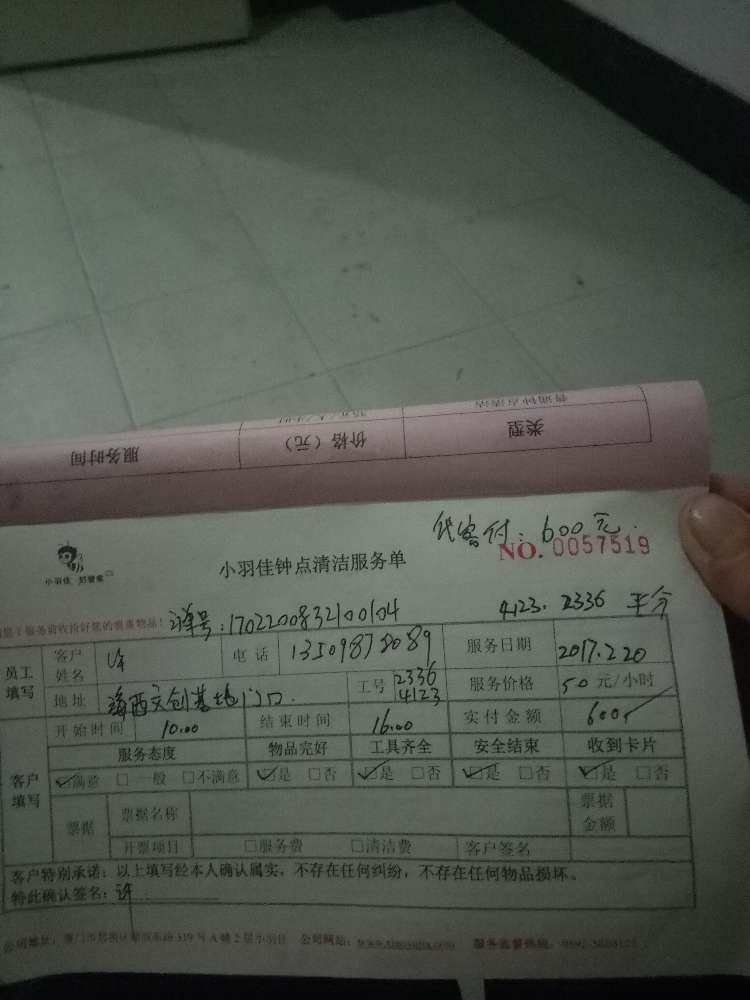 类型
价格（元）
服务时间
代客付：600元
NO. 0057519
小羽佳 好管家
小羽佳钟点清洁服务单
单号：1702200832100104
4123. 2336 平分
员工填写
客户姓名
电话 13509878089
服务日期 2017.2.20
地址 海西文创基地门口
工号 2336 4123
服务价格 50 元/小时
客户填写
开始时间 10:00
结束时间 16:00
实付金额 600
服务态度 物品完好 工具齐全 安全结束 收到卡片
☑满意 □一般 □不满意 ☑是 □否 ☑是 □否 ☑是 □否 ☑是 □否
票据
票据名称
票据金额
开票项目 □服务费 □清洁费 客户签名
客户特别承诺：以上填写经本人确认属实，不存在任何纠纷，不存在任何物品损坏。
特此确认签名：许
公司网站：